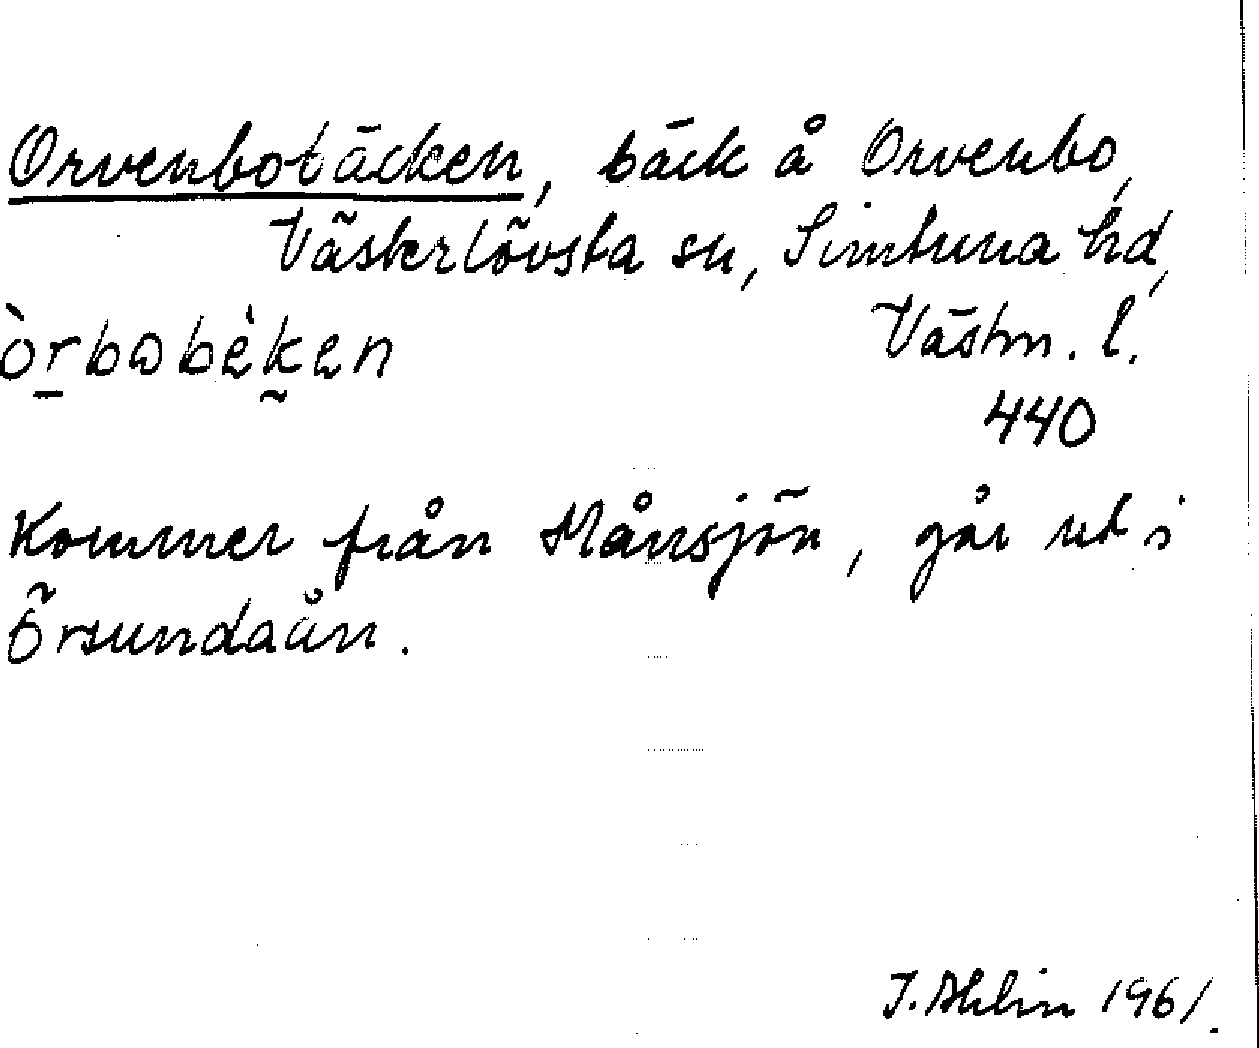 Orvenbobäcken, bäck å Orvenbo,
Västerlövsta sn, Simtuna hd,
Västm. l.
òrbobèken
440
Kommer från Månsjön, går ut i
Örsundaån.
J. Ahlin 1961.